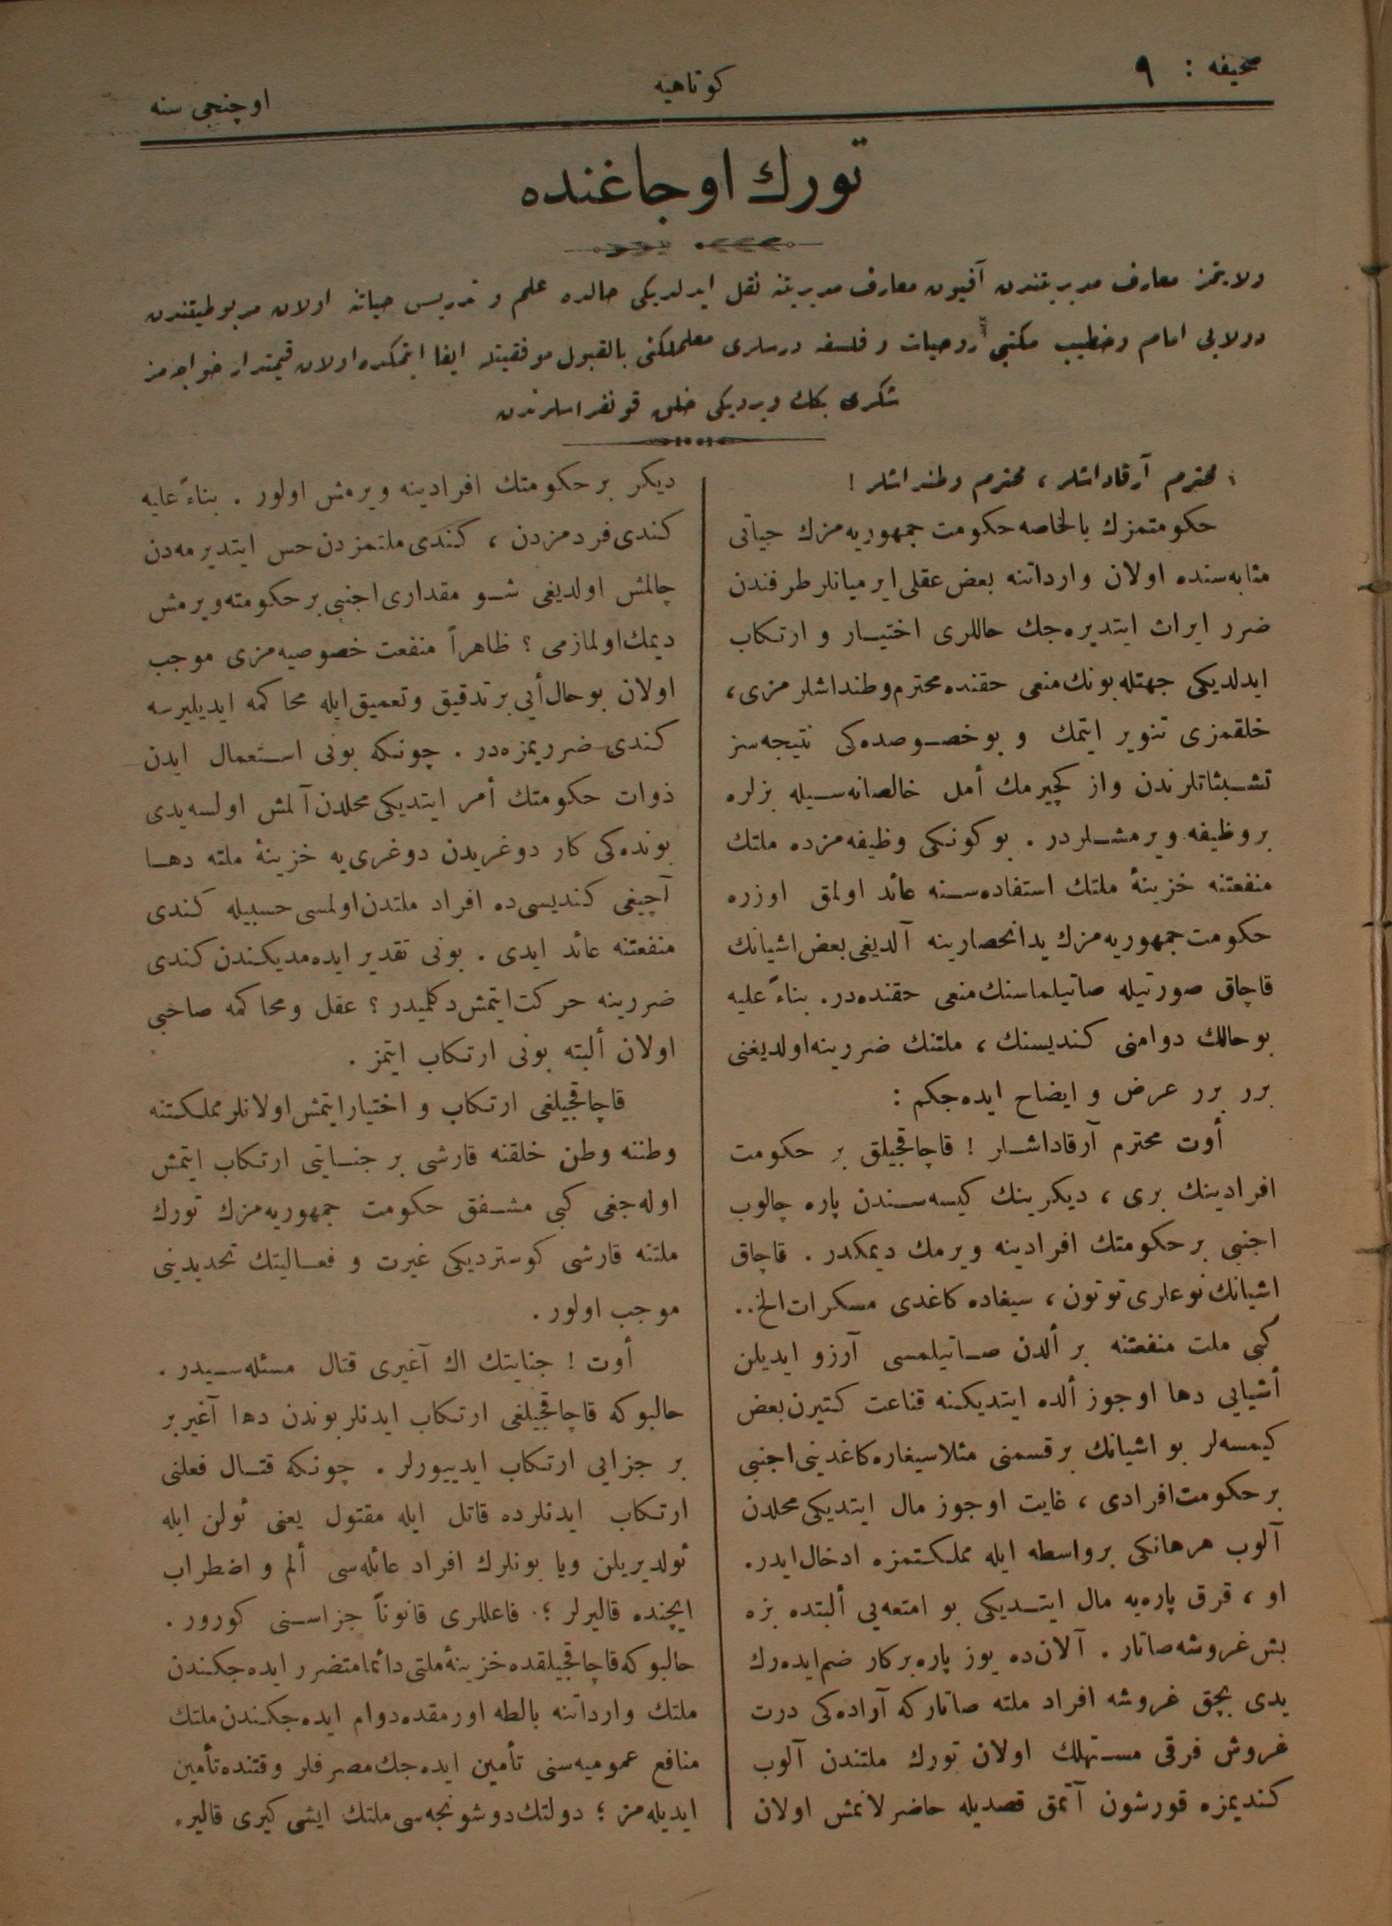 صحيفه : ٩
كوتاهيه
اوچنجى سنه
تورك اوجاغنده
ولايتمز معارف مديريتندن آفيون معارف مديريتنه نقل ايدلديكى حالده علم و تدريس حياتنه اولان مربوطيتندن
دولايى امام و خطيب مكتبى روحيات و فلسفه درسلرى معلملكنى بالقبول موفقيتله ايفا ايتمكده اولان قيمتدار خواجه‌مز
شكرى بكك ويرديكى خلق قونفرانسلرندن
محترم آرقاداشلر ، محترم وطنداشلر !
حكومتمزك بالخاصه حكومت جمهوريه‌مزك حياتى
مثابه‌سنده اولان وارداتنه بعض عقلى ايرميانلر طرفندن
ضرر ايراث ايتديره‌جك حاللرى اختيار و ارتكاب
ايدلديكى جهتله بونك منعى حقنده محترم وطنداشلرمزى ،
خلقمزى تنوير ايتمك و بو خصوصده‌كى نتيجه‌سز
تشبثاتلرندن واز كچيرمك أمل خالصانه‌سيله بزلره
بر وظيفه ويرمشلردر . بو كونكى وظيفه‌مزده ملتك
منفعتنه خزينهٔ ملتك استفاده‌سنه عائد اولمق اوزره
حكومت جمهوريه‌مزك يد انحصارينه آلديغى بعض اشيانك
قاچاق صورتيله صاتيلماسنك منعى حقنده‌در . بناءً عليه
بو حالك دوامنى كنديسنك ، ملتنك ضررينه اولديغنى
برر برر عرض و ايضاح ايده‌جكم :
أوت محترم آرقاداشلر ! قاچاقجيلق بر حكومت
افرادينك برى ، ديكرينك كيسه‌سندن پاره چالوب
اجنبى بر حكومتك افرادينه ويرمك ديمكدر . قاچاق
اشيانك نوعلرى توتون ، سيغاده كاغدى مسكرات الخ..
كبى ملت منفعتنه بر ألدن صاتيلمسى آرزو ايديلن
أشيايى دها اوجوز ألده ايتديكنه قناعت كتيرن بعض
كيمسه‌لر بو اشيانك بر قسمنى مثلا سيغاره كاغدينى اجنبى
بر حكومت افرادى ، غايت اوجوز مال ايتديكى محلدن
آلوب هرهانكى بر واسطه ايله مملكتمزه ادخال ايدر.
او ، قرق پاره‌يه مال ايتديكى بو امتعه‌يى ألبتده بزه
بش غروشه صاتار . آلان ده يوز پاره بر كار ضم ايده‌رك
يدى بچق غروشه افراد ملته صاتار كه آراده‌كى درت
غروش فرقى مستهلك اولان تورك ملتندن آلوب
كنديمزه قورشون آتمق قصديله حاضرلانمش اولان
ديكر بر حكومتك افرادينه ويرمش اولور . بناءً عليه
كندى فردمزدن ، كندى ملتمزدن حس ايتديرمه‌دن
چالمش اولديغى شو مقدارى اجنبى بر حكومته ويرمش
ديمك اولمازمى ؟ ظاهراً منفعت خصوصيه‌مزى موجب
اولان بو حال أيى بر تدقيق و تعميق ايله محاكمه ايديليرسه
كندى ضرريمزه‌در . چونكه بونى استعمال ايدن
ذوات حكومتك أمر ايتديكى محلدن آلمش اولسه‌يدى
بونده‌كى كار دوغريدن دوغرى‌يه خزينهٔ ملته دها
آچيغى كنديسى ده افراد ملتدن اولمسى حسبيله كندى
منفعتنه عائد ايدى . بونى تقدير ايده‌مديكندن كندى
ضررينه حركت ايتمش دكلميدر ؟ عقل و محاكمه صاحبى
اولان ألبته بونى ارتكاب ايتمز .
قاچاقجيلغى ارتكاب و اختيار ايتمش اولانلر مملكتنه
وطننه وطن خلقنه قارشى بر جنايتى ارتكاب ايتمش
اوله‌جغى كبى مشفق حكومت جمهوريه‌مزك تورك
ملتنه قارشى كوسترديكى غيرت و فعاليتك تحديدينى
موجب اولور .
أوت ! جنايتك اك آغيرى قتال مسئله‌سيدر .
حالبوكه قاچاقجيلغى ارتكاب ايدنلر بوندن دها آغير بر
بر جزايى ارتكاب ايدييورلر . چونكه قتال فعلنى
ارتكاب ايدنلرده قاتل ايله مقتول يعنى ئولن ايله
ئولديريلن ويا بونلرك افراد عائله‌سى ألم و اضطراب
ايچنده قاليرلر ؛ فاعللرى قانوناً جزاسنى كورور .
حالبوكه قاچاقجيلقده خزينهٔ ملتى دائما متضرر ايده‌جكندن
ملتك وارداتنه بالطه اورمقده دوام ايده‌جكندن ملتك
منافع عموميه‌سنى تأمين ايده‌جك مصرفلر وقتنده تأمين
ايديله‌مز ؛ دولتك دوشونجه‌سى ملتك ايشى كيرى قالير.